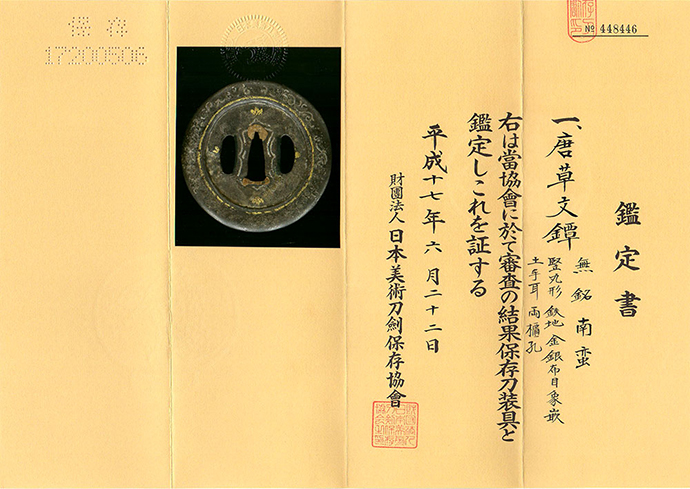 鑑定書
一、唐草文鐔
無銘 南蛮
竪丸形 鉄地 金銀布目象嵌
土手耳 両櫃孔
右は當協會に於て審査の結果保存刀装具と
鑑定しこれを証する
平成十七年六月二十二日
財團法人 日本美術刀劍保存協會
№ 448446
保存
17200506